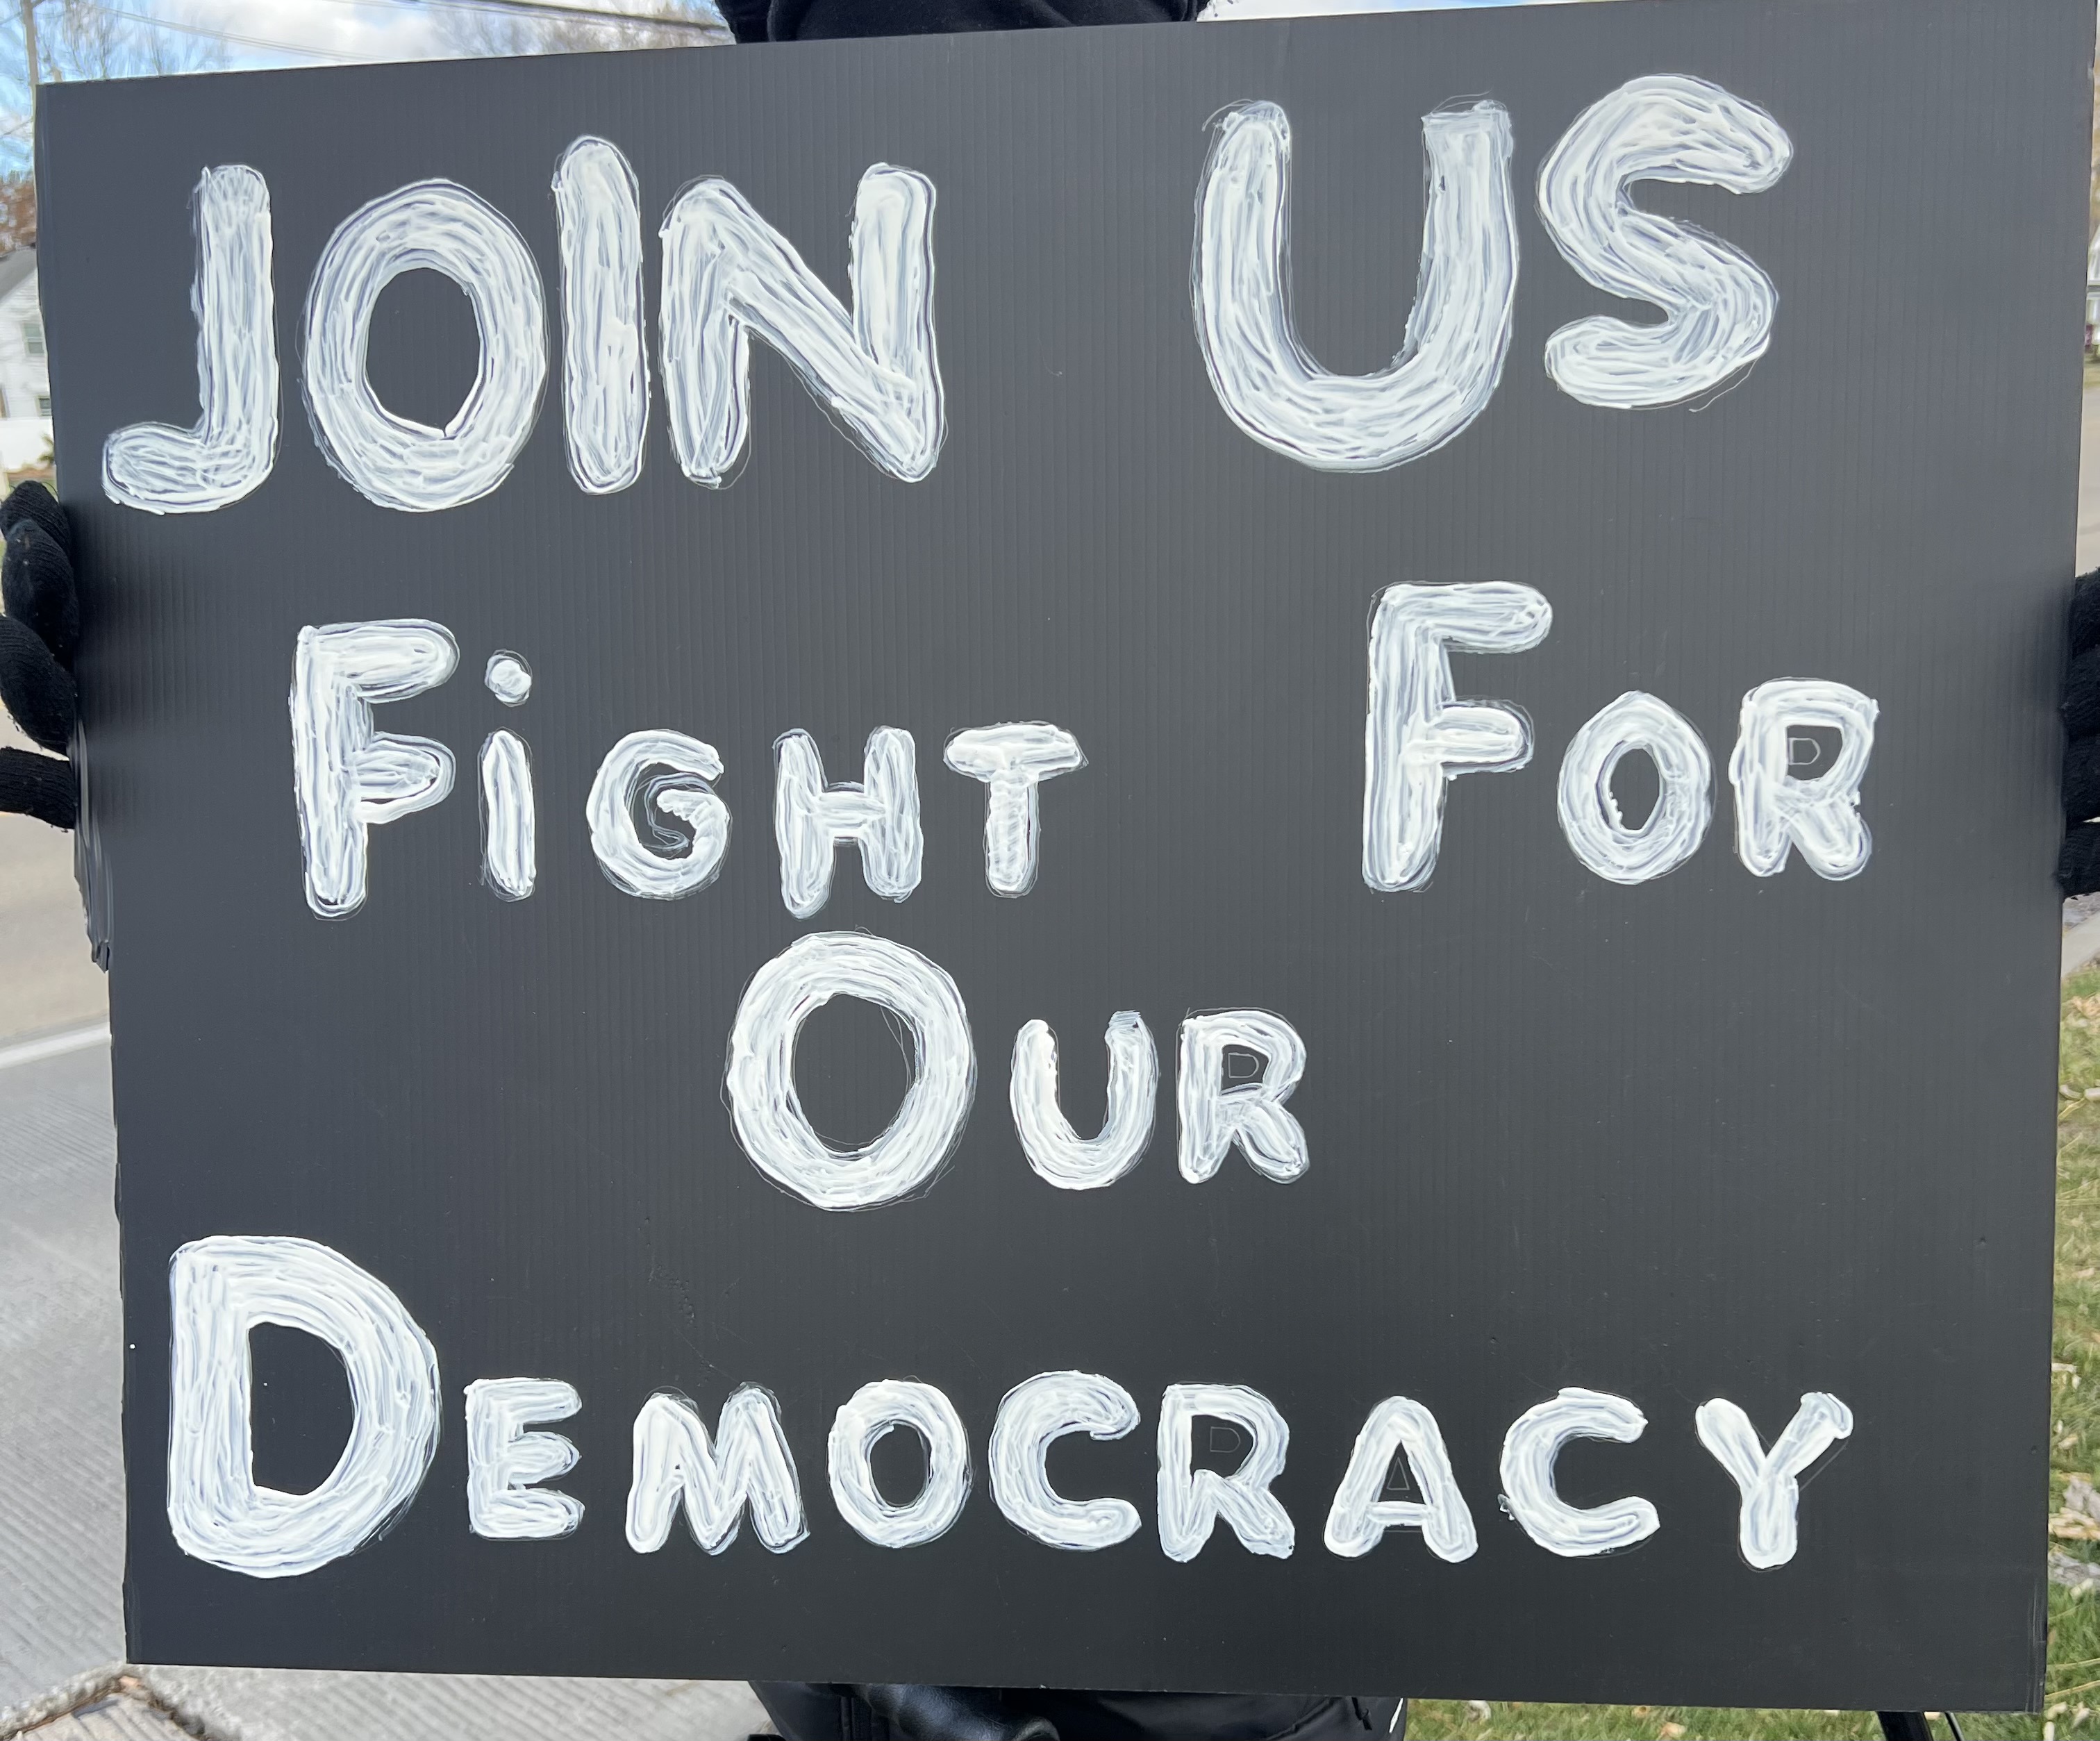 JOIN US
FiGHT FOR
OUR
DEMOCRACY